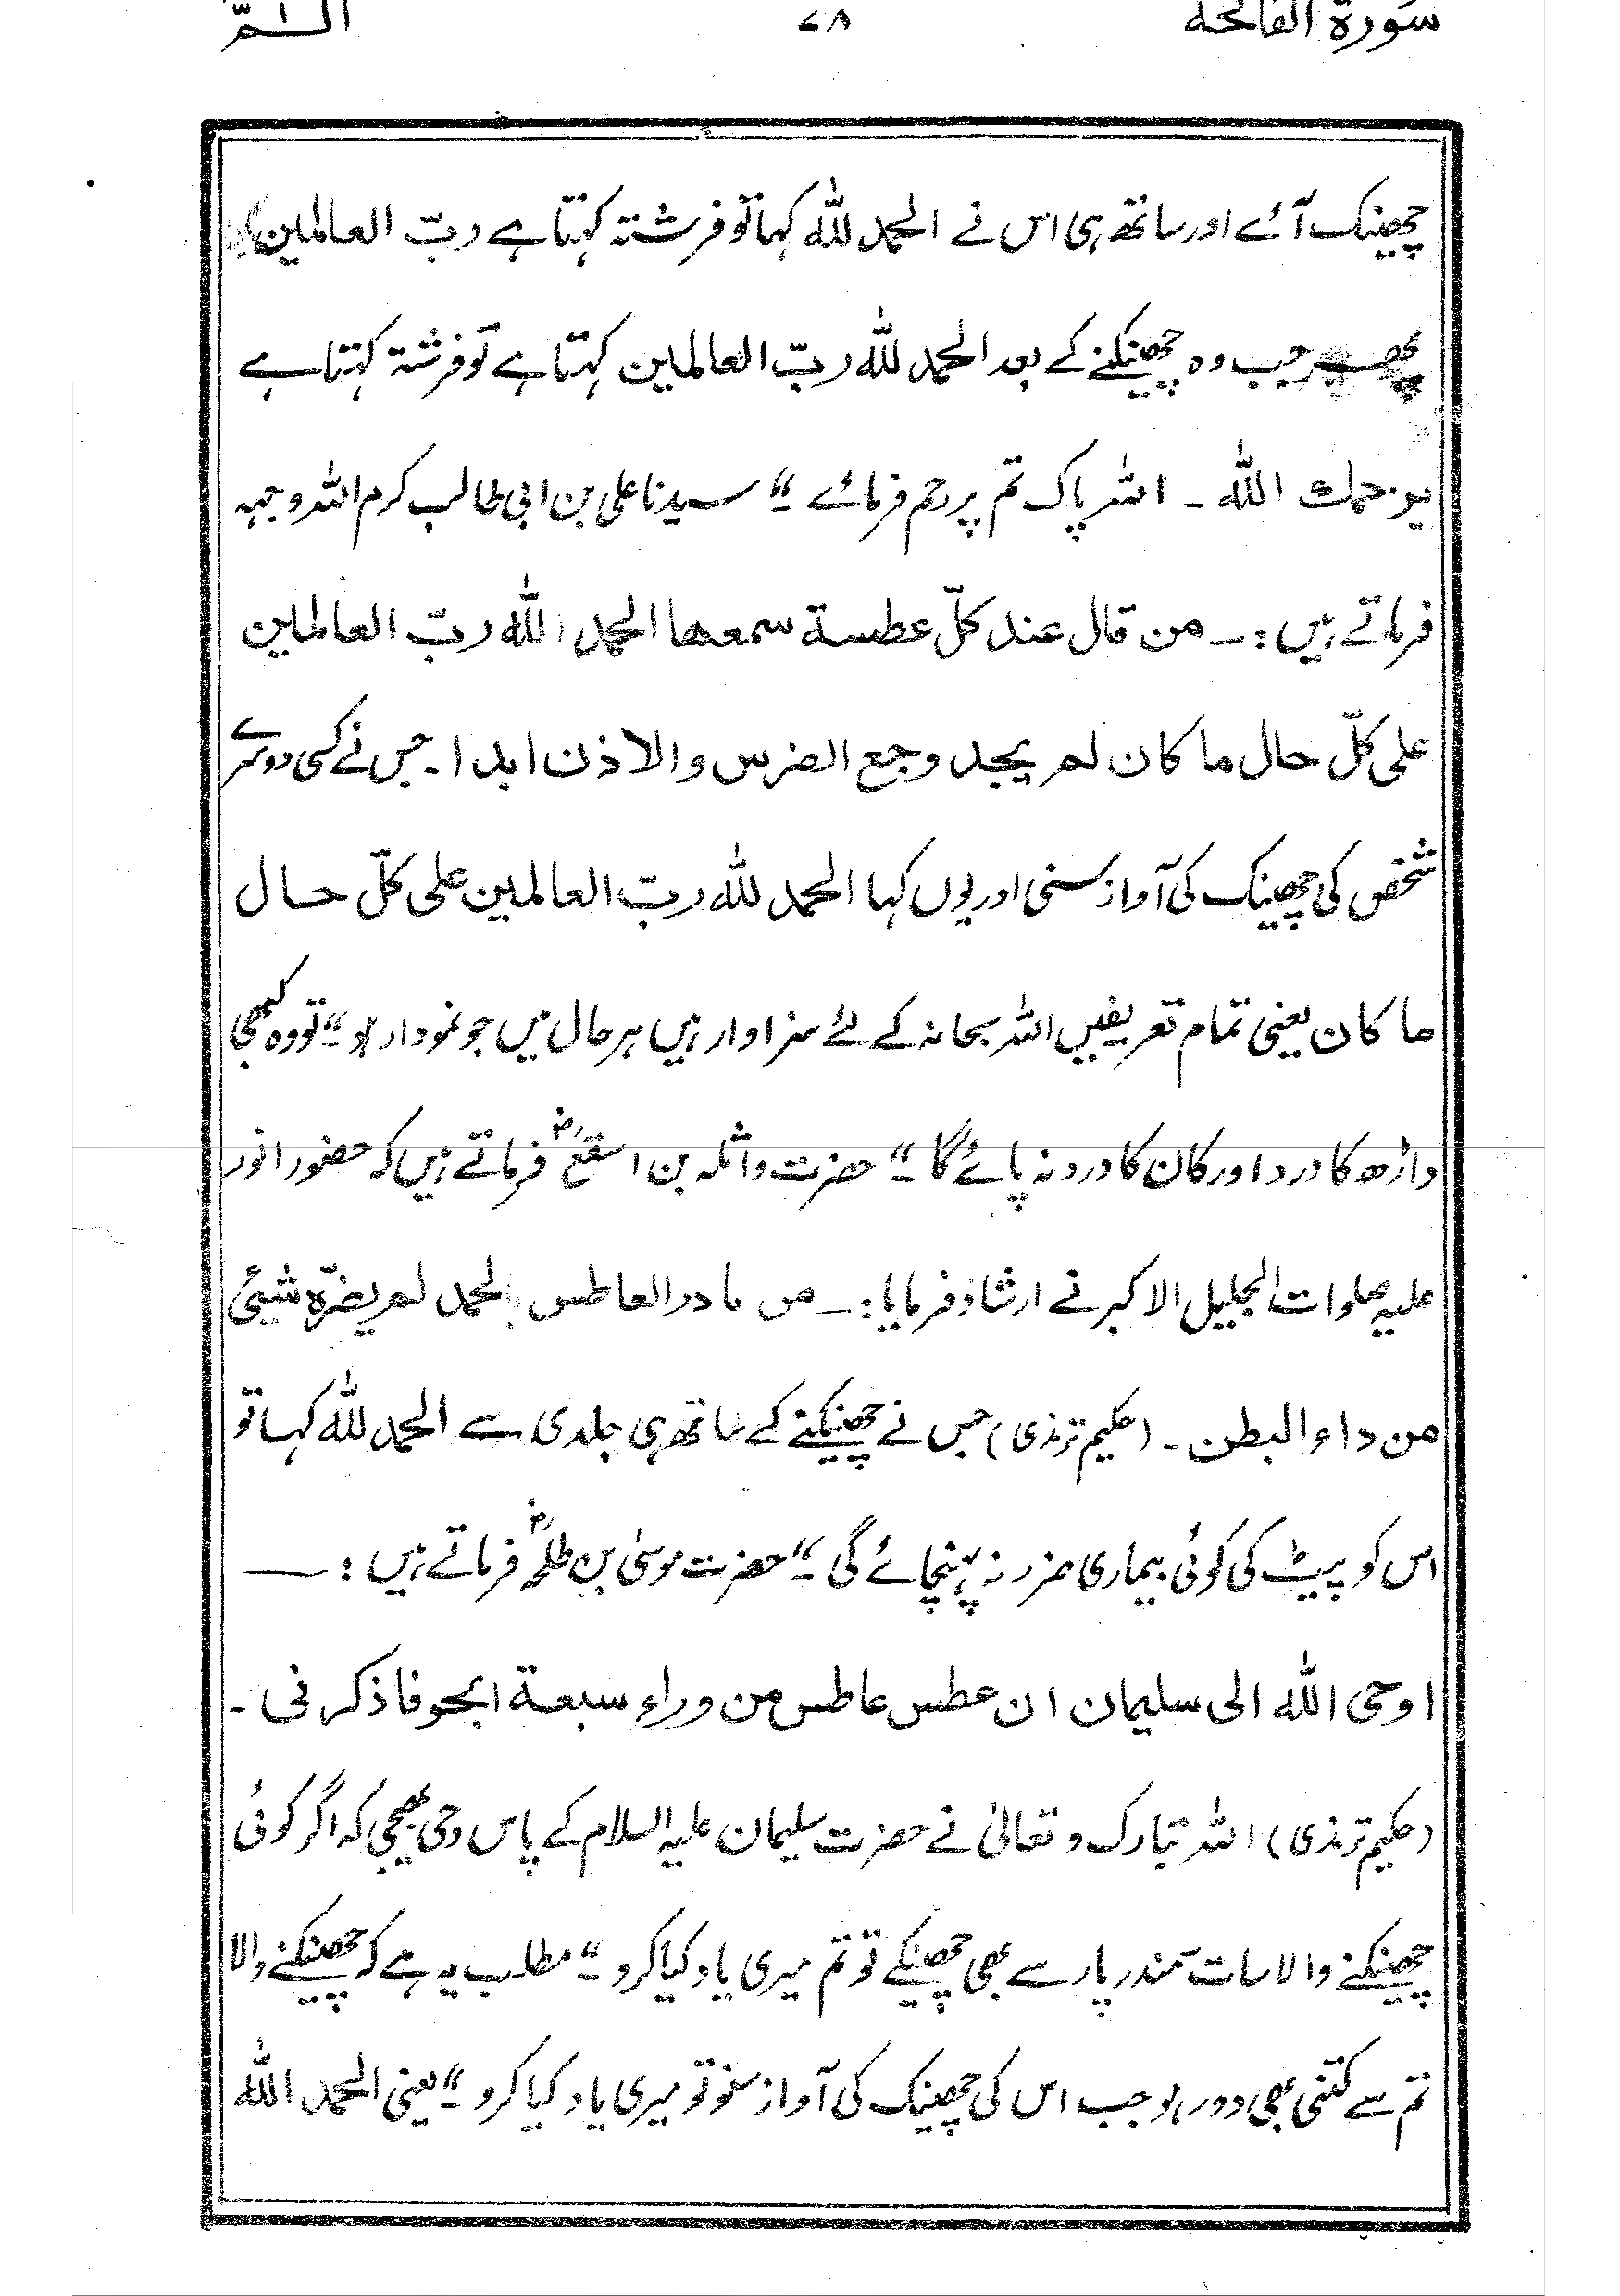 سورة الفاتحة ۷۸ الٓـمّٓ
چھینک آئے اور ساتھ ہی اس نے الحمد للّٰه کہا تو فرشتہ کہتا ہے ربّ العالمین
پھر جب وہ چھینکنے کے بعد الحمد للّٰه ربّ العالمین کہتا ہے تو فرشتہ کہتا ہے
یرحمك اللّٰه ۔ اللہ پاک تم پر رحم فرمائے ۔“ سیدنا علی بن ابی طالب کرم اللہ وجہہ
فرماتے ہیں :۔ من قال عند کلّ عطسة سمعها الحمد اللّٰه ربّ العالمین
علی کلّ حال ما کان لم یجد وجع الضرس والاذن ابدا ۔ جس نے کسی دوسرے
شخص کی چھینک کی آواز سنی اور یوں کہا الحمد للّٰه ربّ العالمین علی کلّ حال
ما کان یعنی تمام تعریفیں اللہ سبحانہ کے لئے سزاوار ہیں ہر حال میں جو نمودار ہو ۔“ تو وہ کبھی
داڑھ کا درد اور کان کا درد نہ پائے گا ۔“ حضرت واثلہ بن اسقعؓ فرماتے ہیں کہ حضور انور
علیہ صلوات الجلیل الاکبر نے ارشاد فرمایا :۔ من بادر العاطس الحمد لم یضرّه شیئی
من داء البطن ۔ (حکیم ترمذی) جس نے چھینکنے کے ساتھ ہی جلدی سے الحمد للّٰه کہا تو
اس کو پیٹ کی کوئی بیماری ضرر نہ پہنچائے گی ۔“ حضرت موسیٰ بن طلحہؓ فرماتے ہیں :۔
اوحی اللّٰه الی سلیمان ان عطس عاطس من وراء سبعة ابحر فاذکرنی ۔
(حکیم ترمذی) اللہ تبارک و تعالیٰ نے حضرت سلیمان علیہ السلام کے پاس وحی بھیجی کہ اگر کوئی
چھینکنے والا سات سمندر پار سے بھی چھینکے تو تم میری یاد کیا کرو ۔“ مطلب یہ ہے کہ چھینکنے والا
تم سے کتنی بھی دور ہو جب اس کی چھینک کی آواز سنو تو میری یاد کیا کرو ۔“ یعنی الحمد اللّٰه